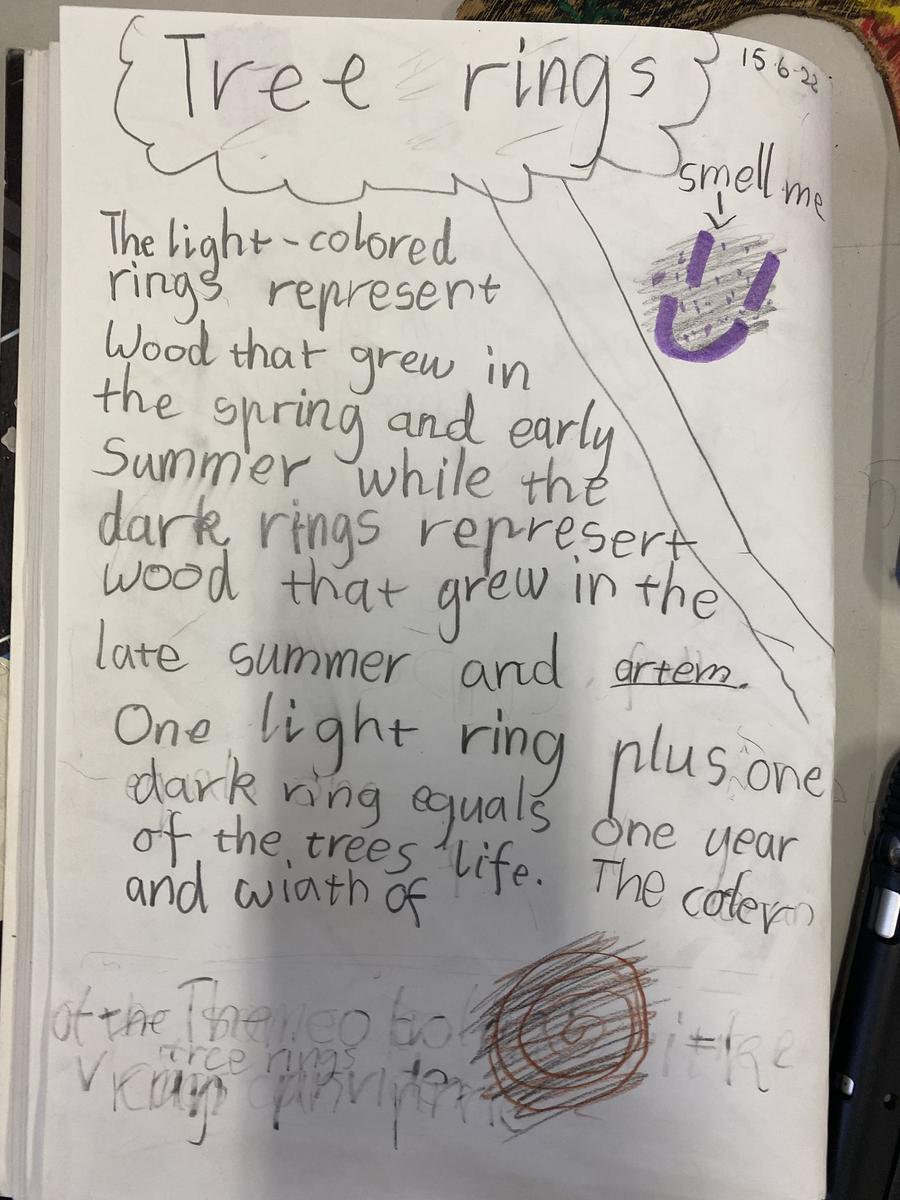 Tree rings
15-6-22
smell me
The light-colored
rings represent
Wood that grew in
the spring and early
Summer while the
dark rings represert
wood that grew in the
late summer and artem.
One light ring plus one
dark ring equals one year
of the trees life. The
and wiath of
of the
tree rings